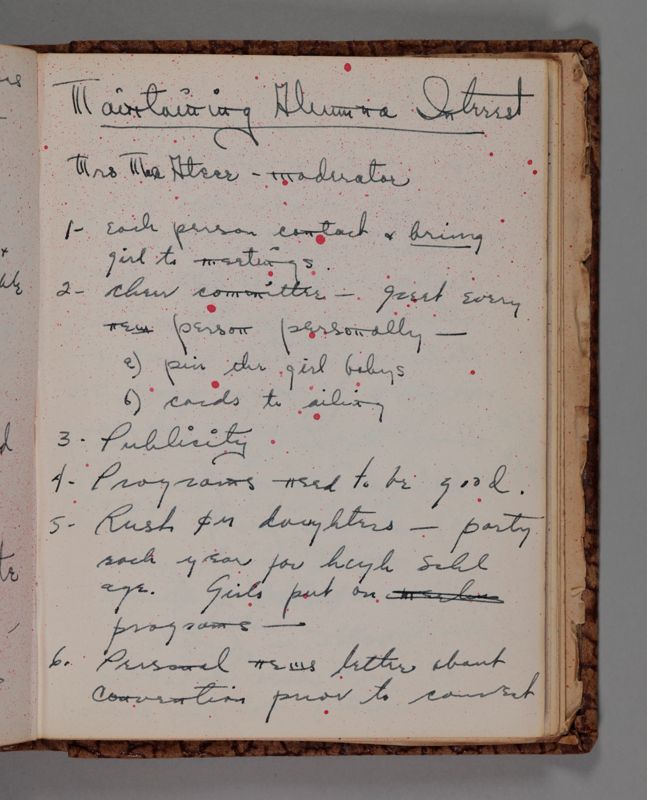 Maintaining Alumna Interest
Mrs - moderator
1- Each person contact & bring
girl to meetings.
2- cheer committee - greet every
new person personally —
a) pin the girl babys
b) cards to ailing
3- Publicity
4- Programs need to be good.
5- Rush daughters - party
each year for high Schl
age. Girls put on
programs —
6. Personal news letter about
Convention prior to